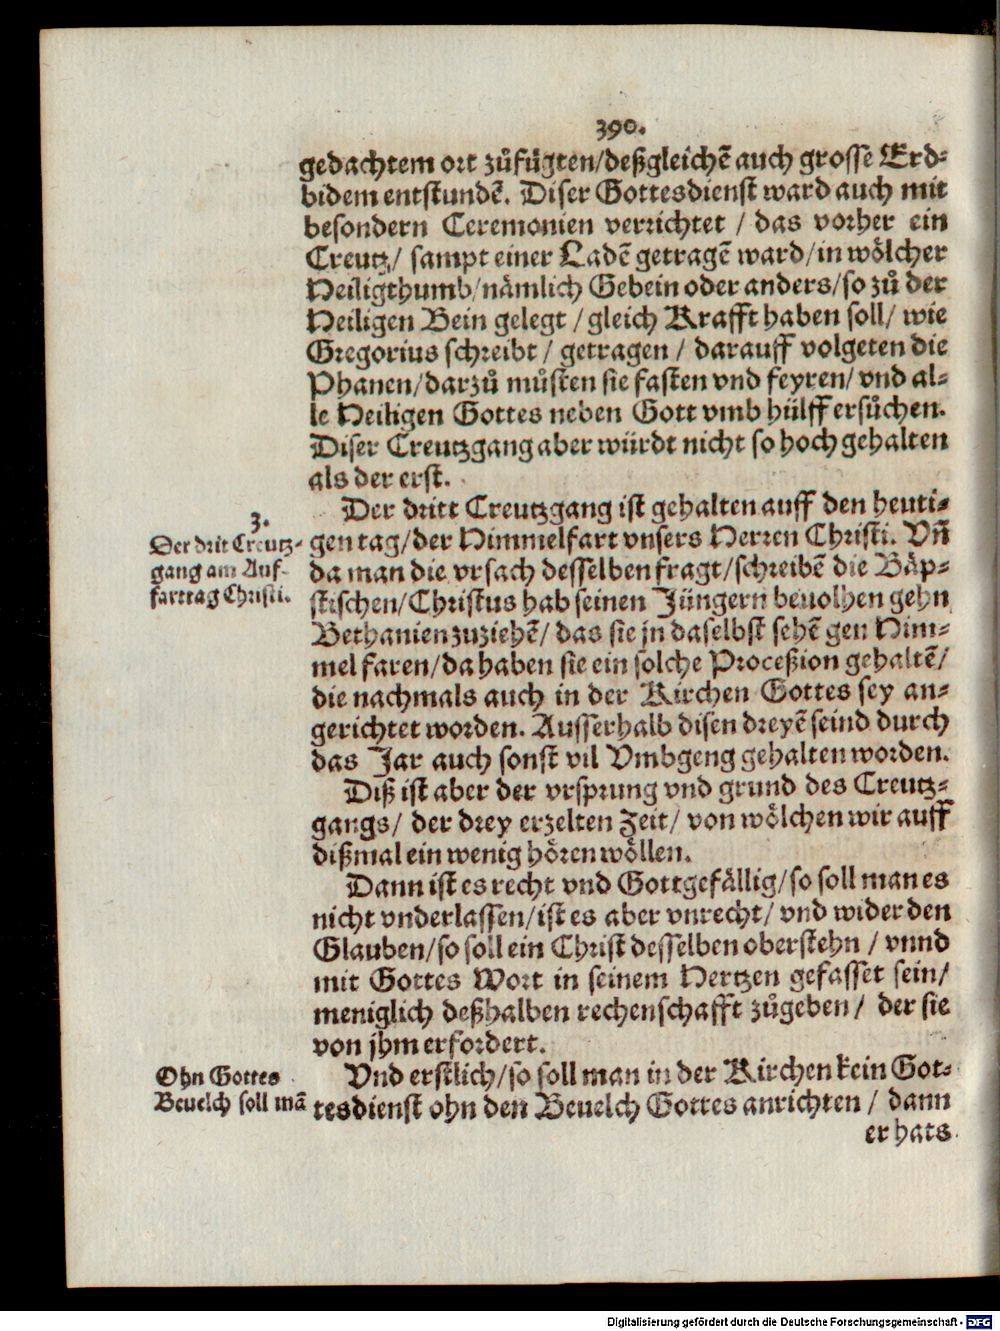 390.
gedachtem ort zůfügten/deßgleichẽ auch grosse Erd-
bidem entstundẽ. Diser Gottesdienst ward auch mit
besondern Ceremonien verrichtet / das vorher ein
Creutz/ sampt einer Ladẽ getragẽ ward/in wölcher
Heiligthumb/nämlich Gebein oder anders/so zů der
Heiligen Bein gelegt /gleich Krafft haben soll/ wie
Gregorius schreibt / getragen / darauff volgeten die
Phanen/darzů můsten sie fasten vnd feyren/ vnd al-
le Heiligen Gottes neben Gott vmb hülff ersůchen.
Diser Creutzgang aber würdt nicht so hoch gehalten
als der erst.
3.
Der drit Creutz-
gang am Auf-
farttag Christi.
Der dritt Creutzgang ist gehalten auff den heuti-
gen tag/der Himmelfart vnsers Herren Christi. Vñ
da man die vrsach desselben fragt/schreibẽ die Bäp-
stischen/Christus hab seinen Jüngern beuolhen gehn
Bethanien zuziehẽ/ das sie jn daselbst sehẽ gen Him-
mel faren/da haben sie ein solche Proceßion gehaltẽ/
die nachmals auch in der Kirchen Gottes sey an-
gerichtet worden. Ausserhalb disen dreyẽ seind durch
das Jar auch sonst vil Vmbgeng gehalten worden.
Diß ist aber der vrsprung vnd grund des Creutz-
gangs/ der drey erzelten Zeit/ von wölchen wir auff
dißmal ein wenig hören wöllen.
Dann ist es recht vnd Gottgefällig/so soll man es
nicht vnderlassen/ist es aber vnrecht/ vnd wider den
Glauben/so soll ein Christ desselben oberstehn / vnnd
mit Gottes Wort in seinem Hertzen gefasset sein/
meniglich deßhalben rechenschafft zůgeben/ der sie
von jhm erfordert.
Ohn Gottes
Beuelch soll mã
Vnd erstlich/so soll man in der Kirchen kein Got-
tesdienst ohn den Beuelch Gottes anrichten / dann
er hats
Digitalisierung gefördert durch die Deutsche Forschungsgemeinschaft - DFG